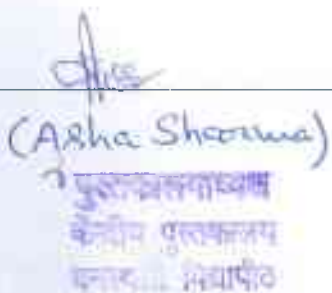 (Asha Sharma)
पुस्तकालयाध्यक्ष
केन्द्रीय पुस्तकालय
विद्यापीठ